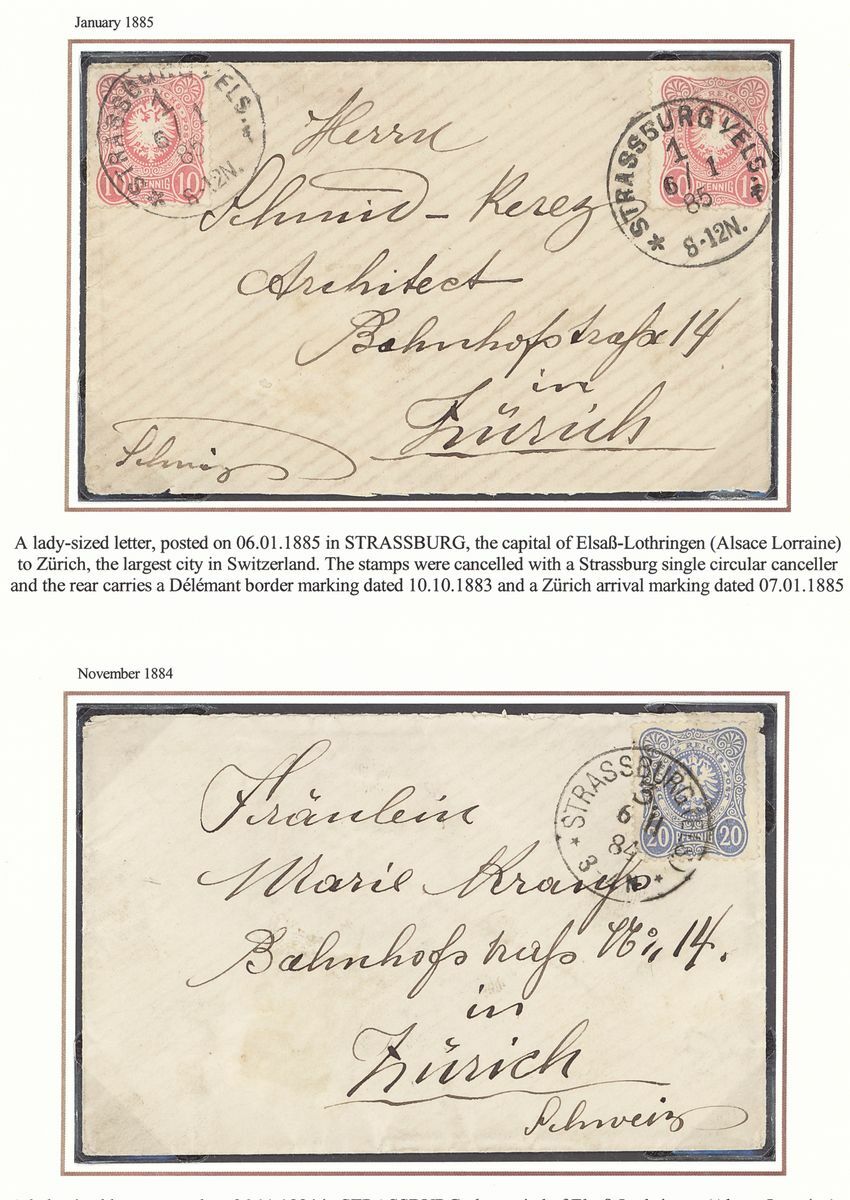 January 1885
REICHS
10 PFENNIG 10
STRASSBURG I/ELS. *
1
6 / 1
85
8-12N.
REICHS
10 PFENNIG 10
* STRASSBURG I/ELS. *
1
6 / 1
85
8-12N.
Herrn
Schmid - Kerez
Architect
Bahnhofstraße 14
in
Zürich
Schweiz
A lady-sized letter, posted on 06.01.1885 in STRASSBURG, the capital of Elsaß-Lothringen (Alsace Lorraine)
to Zürich, the largest city in Switzerland. The stamps were cancelled with a Strassburg single circular canceller
and the rear carries a Délémant border marking dated 10.10.1883 and a Zürich arrival marking dated 07.01.1885
November 1884
REICHS
20 PFENNIG 20
* STRASSBURG
6
11
84
Fräulein
Marie
Bahnhofstraße No. 14.
in
Zürich
Schweiz